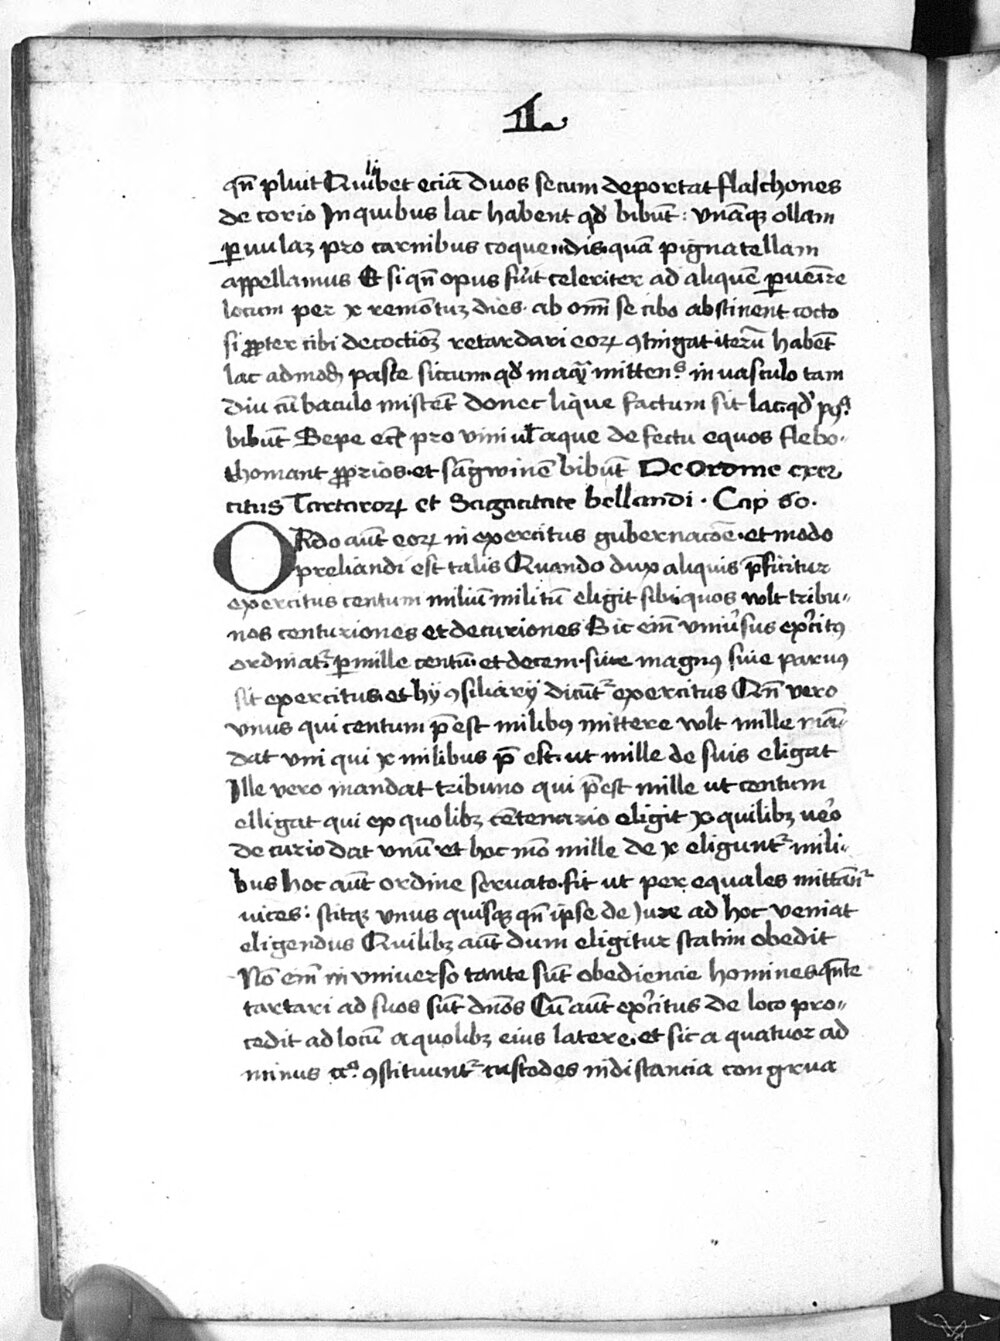 II.
qn̄ pluit Quilibet eciā duos secum deportat flaschones
de corio In quibus lac habent qd̛ bibūt: vnāqꝫ ollam
ꝑuulaꝫ pro carnibus coquendis quā pignatellam
appellamus Et si qn̄ opus fūit celeriter ad aliquē ꝑueīre
locum per x remōtuꝫ dies· ab om̄i se cibo abstinent cocto
si ꝓpter cibi decoctiōꝫ retardari eoꝝ ꝯtingat iterū habēt
lac ad modū paste siccum qd̛ in aqua mittentes in vasculo tam
diu cū baculo miscēt donec lique factum sit lac· qd̛ pꝰ
bibūt Sepe eciā pro vini ul̄ aque defectu equos flebo·
thomant ꝓprios· et sāgwinē bibūt De ordine exer
citus Tartaroꝝ et Sagacitate bellandi · Cap̄ 60·
ORdo aūt eoꝝ in exercitus gubernacōe· et modo
preliandi est talis Quando dux aliquis p̄ficitur
exercitus centum miliū militū eligit sibi quos vult tribu-
nos centuriones et decuriones Sic em̄ vniūsus ex̄citꝰ
ordinat᷑ ꝑ mille centū· et decem· siue magnꝰ siue parvꝰ
sit exercitus· et hÿ ꝯsiliarÿ dicūt᷑ exercitus Qn̄ vero
vnus qui centum p̄est milibꝰ mittere vult mille mā-
dat vni qui x milibus p̄ est· ut mille de suis eligat
Ille vero mandat tribuno qui p̄est mille ut centum
elligat qui ex quolibꝫ cētenario eligit x quilibꝫ ueō
decurio dat vnū et hoc mō mille de x eligunt᷑ mili-
bus hoc aūt ordine seruato· fit ut per equales mittan̄t᷑
uices: scitqꝫ vnus quisqꝫ qn̄ ipse de Jure ad hoc veniat
eligendus Quilibꝫ aūt dum eligitur statim obedit
Nō em̄ in vniuerso tante sūt obediencie homines qn̄te
tartari ad suos sūt dn̄os Cū aūt ex̄citus de loco pro-
cedit ad locū a quolibꝫ eius latere· et sic a quatuor ad
minus ꝯstituunt᷑ custodes in distancia congrua